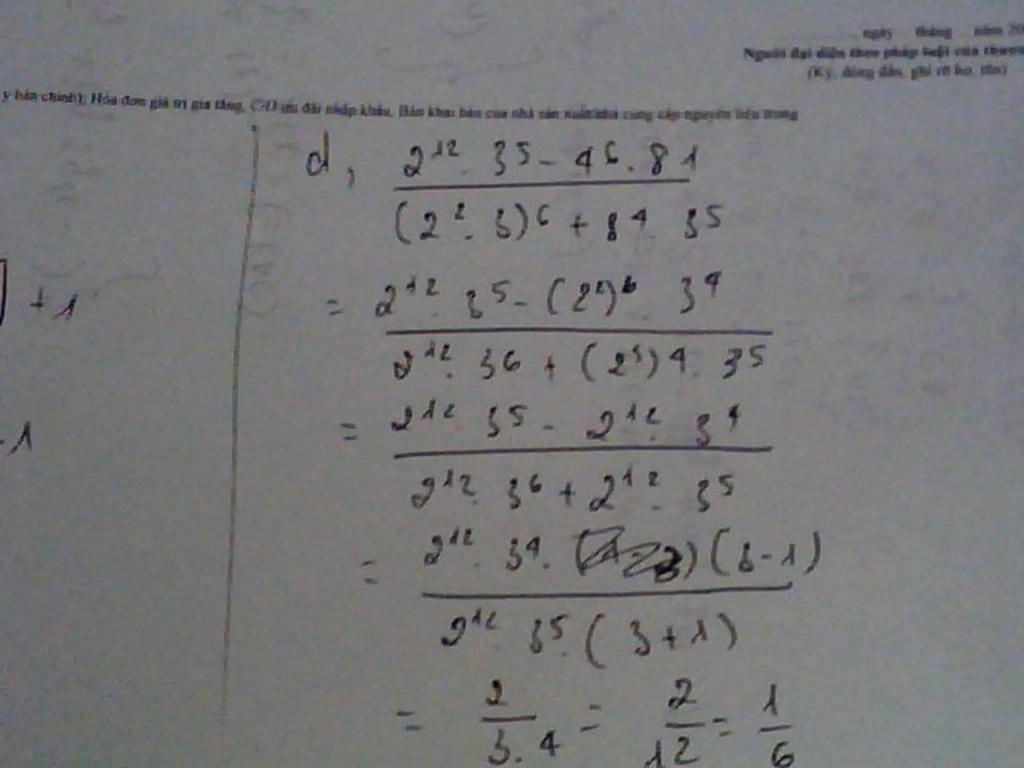 ngày tháng năm 20
Người đại diện theo pháp luật của thương
(Ký, đóng dấu, ghi rõ họ, tên)
y bản chính); Hóa đơn giá trị gia tăng, C/O ưu đãi nhập khẩu, Bản khai báo của nhà sản xuất/nhà cung cấp nguyên liệu trong
] + 1
- 1
d, \frac{2^{12} . 3^5 - 4^6 . 81}{(2^2 . 3)^6 + 8^4 . 3^5}
= \frac{2^{12} . 3^5 - (2^2)^6 . 3^4}{2^{12} . 3^6 + (2^3)^4 . 3^5}
= \frac{2^{12} . 3^5 - 2^{12} . 3^4}{2^{12} . 3^6 + 2^{12} . 3^5}
= \frac{2^{12} . 3^4 . (3 - 1)}{2^{12} . 3^5 . (3 + 1)}
= \frac{2}{3 . 4} = \frac{2}{12} = \frac{1}{6}